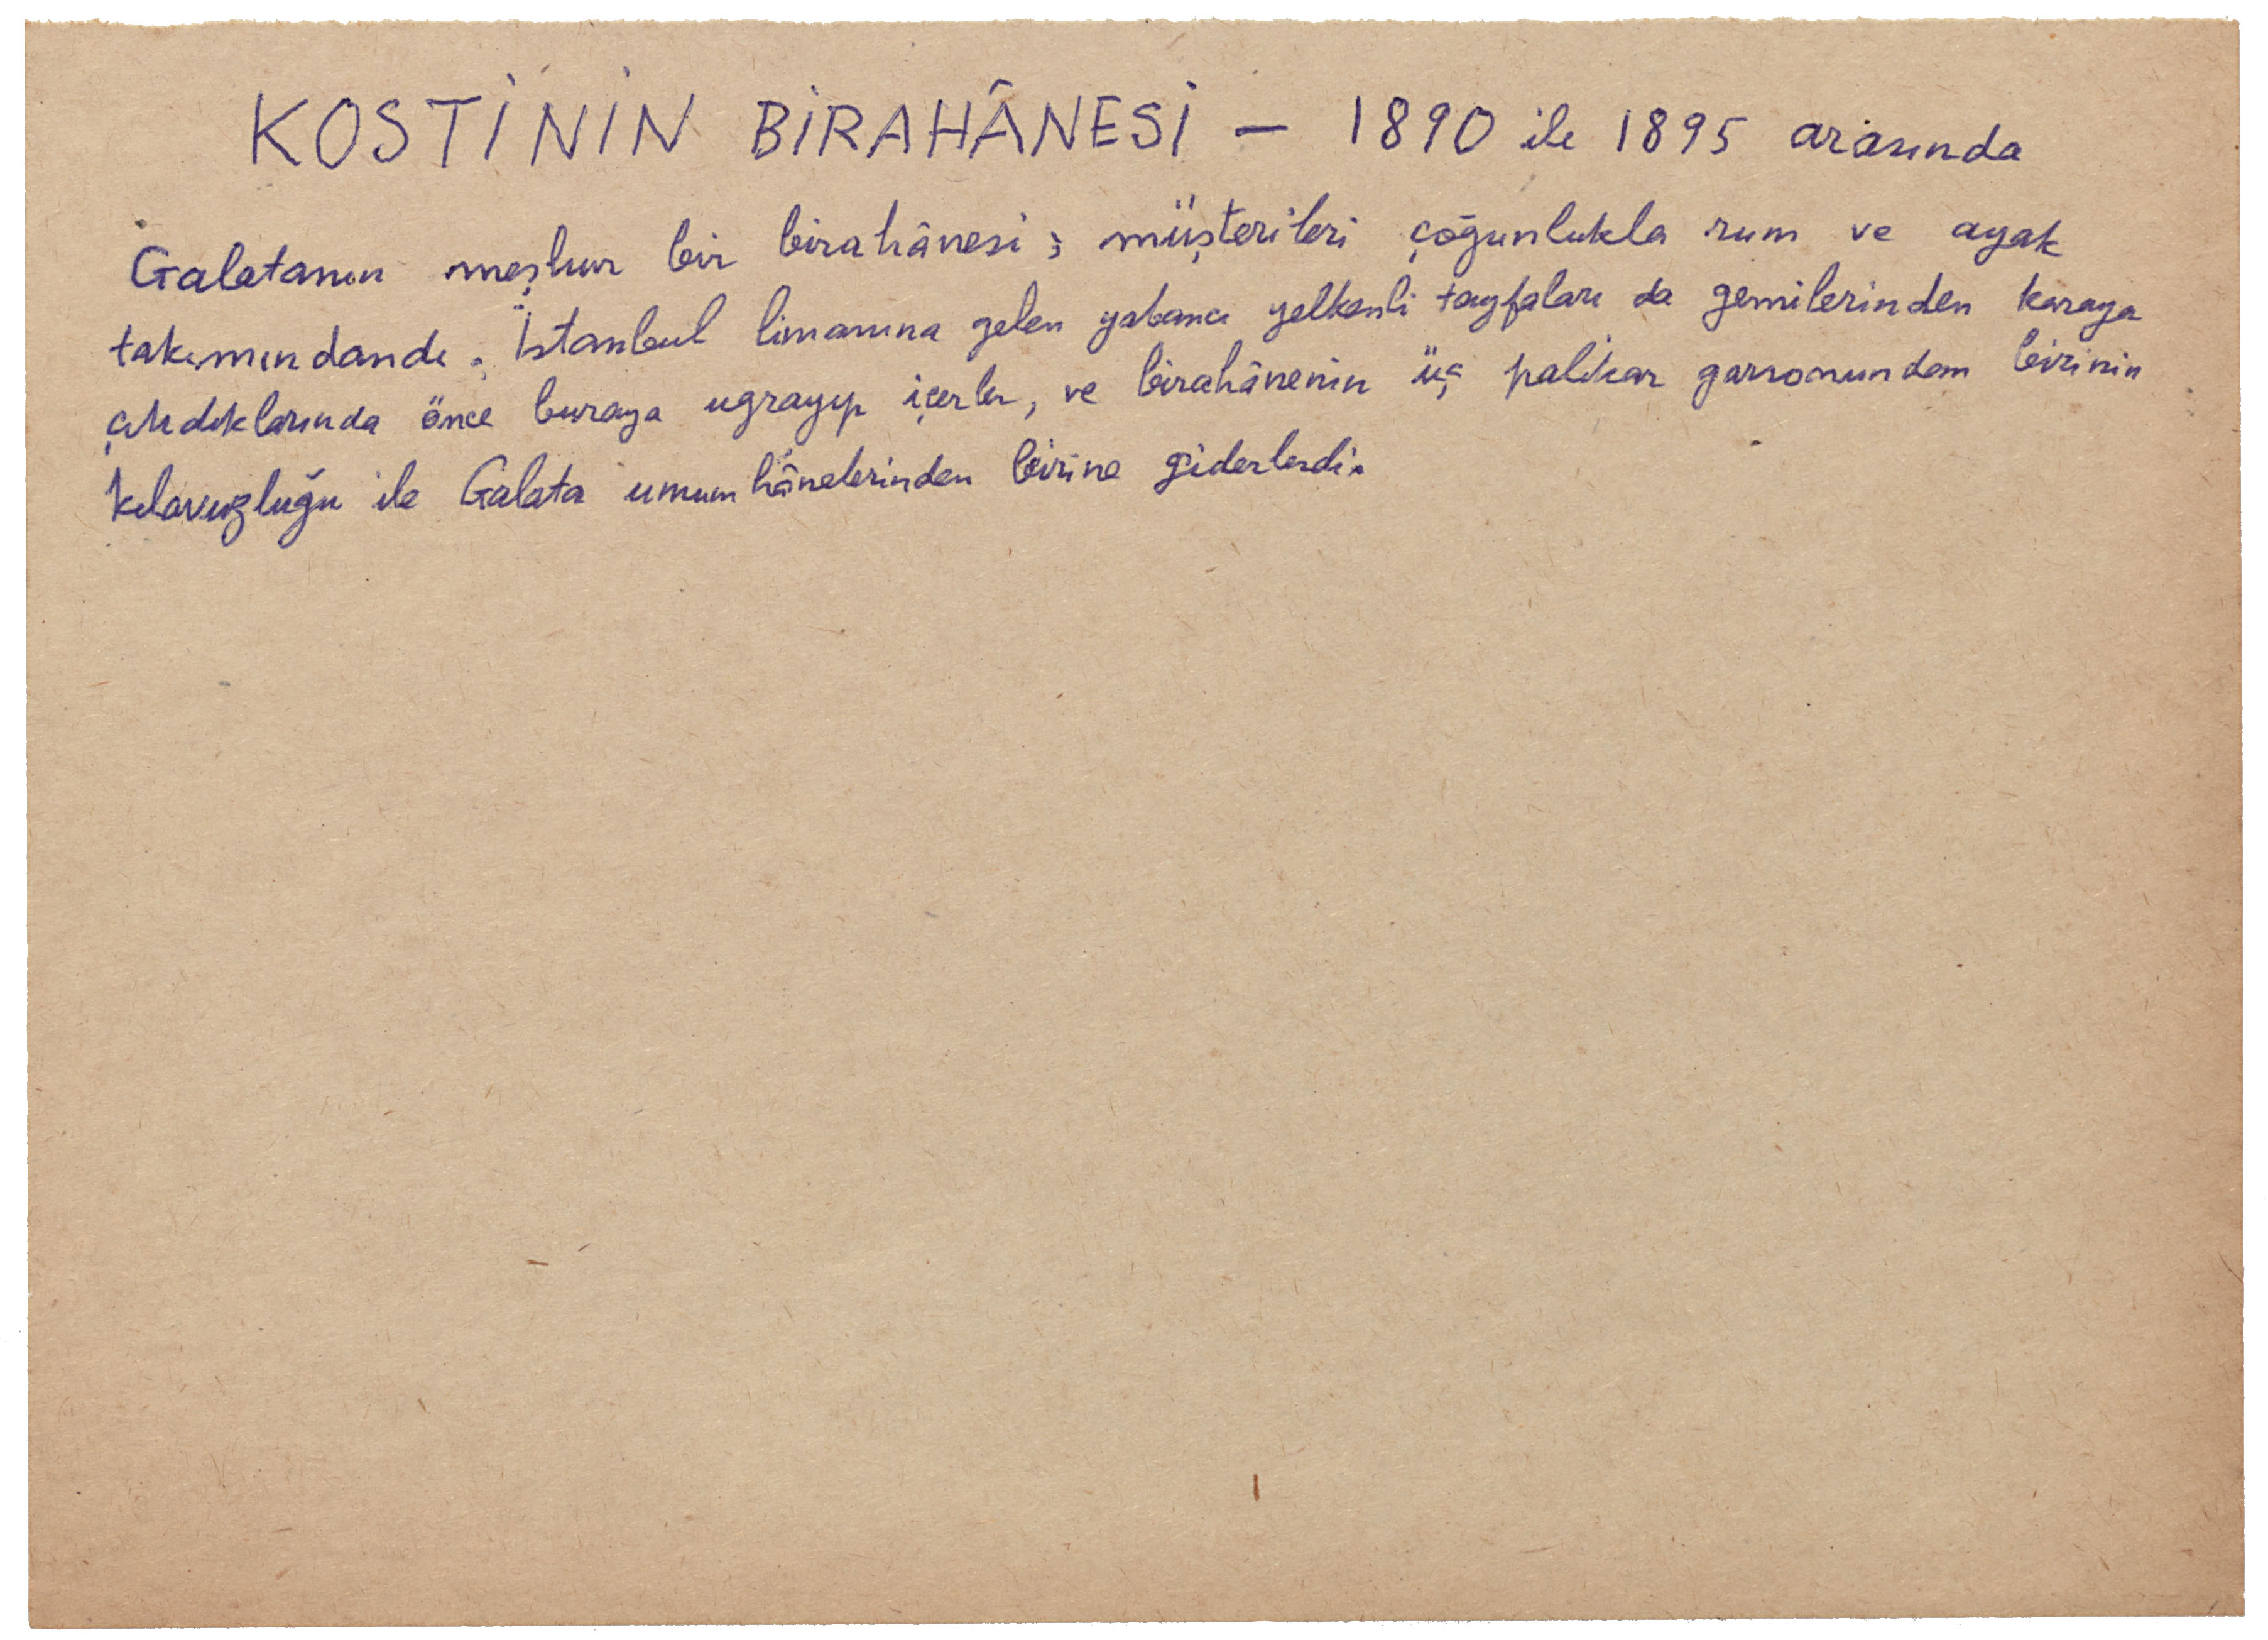 KOSTİNİN BİRAHÂNESİ – 1890 ile 1895 arasında
Galatanın meşhur bir birahânesi; müşterileri çoğunlukla rum ve ayak
takımındandı. İstanbul limanına gelen yabancı yelkenli tayfaları da gemilerinden karaya
çıkdıklarında önce buraya ugrayıp içerler, ve birahânenin üç palikar garsonundan birinin
kılavuzluğu ile Galata umumhânelerinden birine giderlerdi.